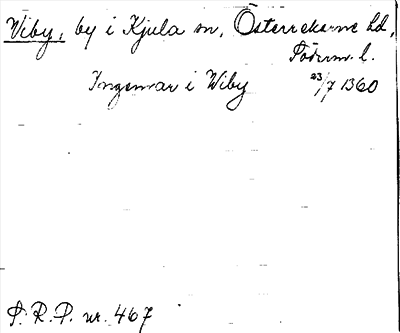 Viby, by i Kjula sn, Österrekarne hd,
Söderm. l.
Ingemar i Wiby 23/7 1360
S. R. P. nr. 467